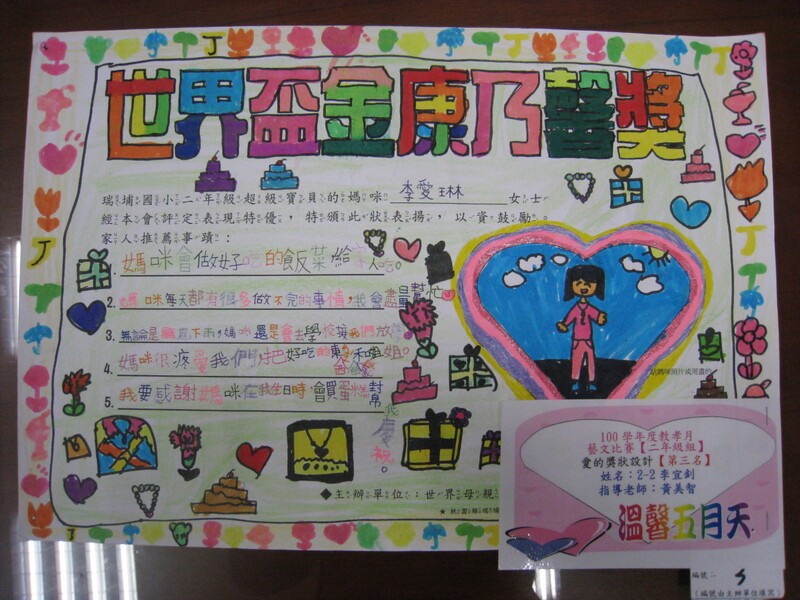 世界盃金康乃馨獎
瑞埔國小二年級超級寶貝的媽咪 李愛琳 女士
經本會評定表現特優，特頒此狀表揚，以資鼓勵。
家人推薦事蹟：
1. 媽咪會做好吃的飯菜給家人吃。
2. 媽咪每天都有很多做不完的事情，我會盡量幫忙。
3. 無論是 下雨，媽咪還是會去學校接我們放
4. 媽咪很疼愛我們，把好吃的 和姐姐。
5. 我要感謝媽咪在我生日時，會買蛋糕 幫我慶祝。
貼媽咪照片或用畫的
◆主辦單位：世界母親
100學年度教孝月
藝文比賽【二年級組】
愛的獎狀設計【第三名】
姓名：2-2 李宜釗
指導老師：黃美智
溫馨五月天
編號：5
（編號由主辦單位填寫）